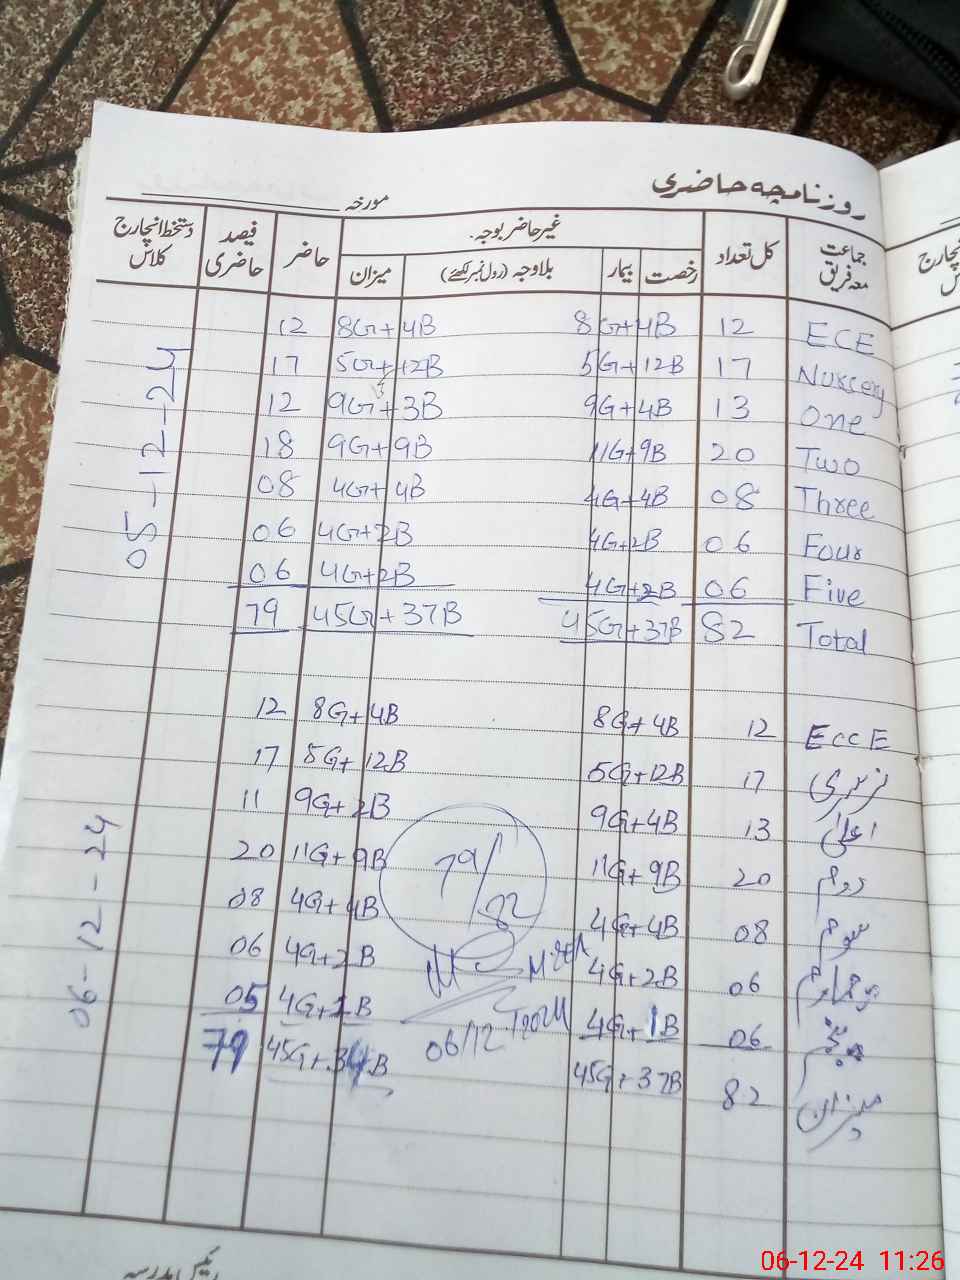 روزنامچہ حاضری
مورخہ
جماعت معہ فریق کل تعداد غیر حاضر بوجہ۔ حاضر فیصد حاضری دستخط انچارج کلاس
رخصت بیمار بلاوجہ (رول نمبر لکھئے) میزان
05-12-24
ECE 12 8G+4B 8G+4B 12
Nursery 17 5G+12B 5G+12B 17
One 13 9G+4B 9G+3B 12
Two 20 11G+9B 9G+9B 18
Three 08 4G+4B 4G+4B 08
Four 06 4G+2B 4G+2B 06
Five 06 4G+2B 4G+2B 06
Total 82 45G+37B 45G+37B 79
06-12-24
EccE 12 8G+4B 8G+4B 12
نرسری 17 5G+12B 5G+12B 17
اعلیٰ 13 9G+4B 9G+2B 11
دوم 20 11G+9B 11G+9B 20
سوم 08 4G+4B 4G+4B 08
چہارم 06 4G+2B 4G+2B 06
پنجم 06 4G+1B 05
میزان 82 45G+37B 45G+34B 79
79/82
06/12
06-12-24 11:26